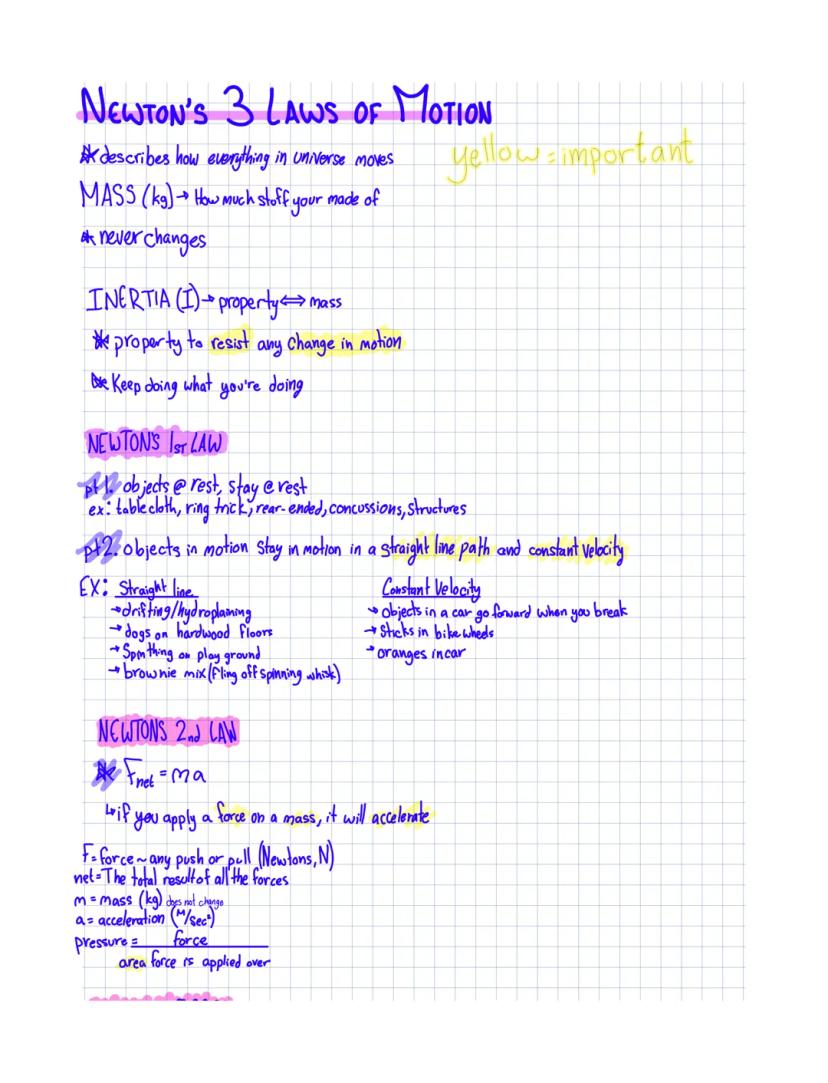 NEWTON'S 3 LAWS OF MOTION
* describes how everything in universe moves
yellow = important
MASS (kg) → How much stoff your made of
* never changes
INERTIA (I) → property ⟺ mass
* property to resist any change in motion
* Keep doing what you're doing
NEWTON'S 1ST LAW
pt 1. objects @ rest, stay @ rest
ex: table cloth, ring trick, rear-ended, concussions, structures
pt 2. objects in motion stay in motion in a straight line path and constant velocity
EX: Straight line
→ drifting/hydroplaning
→ dogs on hardwood floors
→ Spin thing on play ground
→ brownie mix (fling off spinning whisk)
Constant Velocity
→ Objects in a car go forward when you break
→ Sticks in bike wheels
→ oranges in car
NEWTONS 2nd LAW
* Fnet = ma
↳ if you apply a force on a mass, it will accelerate
F = force ~ any push or pull (Newtons, N)
net = The total result of all the forces
m = mass (kg) does not change
a = acceleration (M/sec²)
pressure = force
area force is applied over